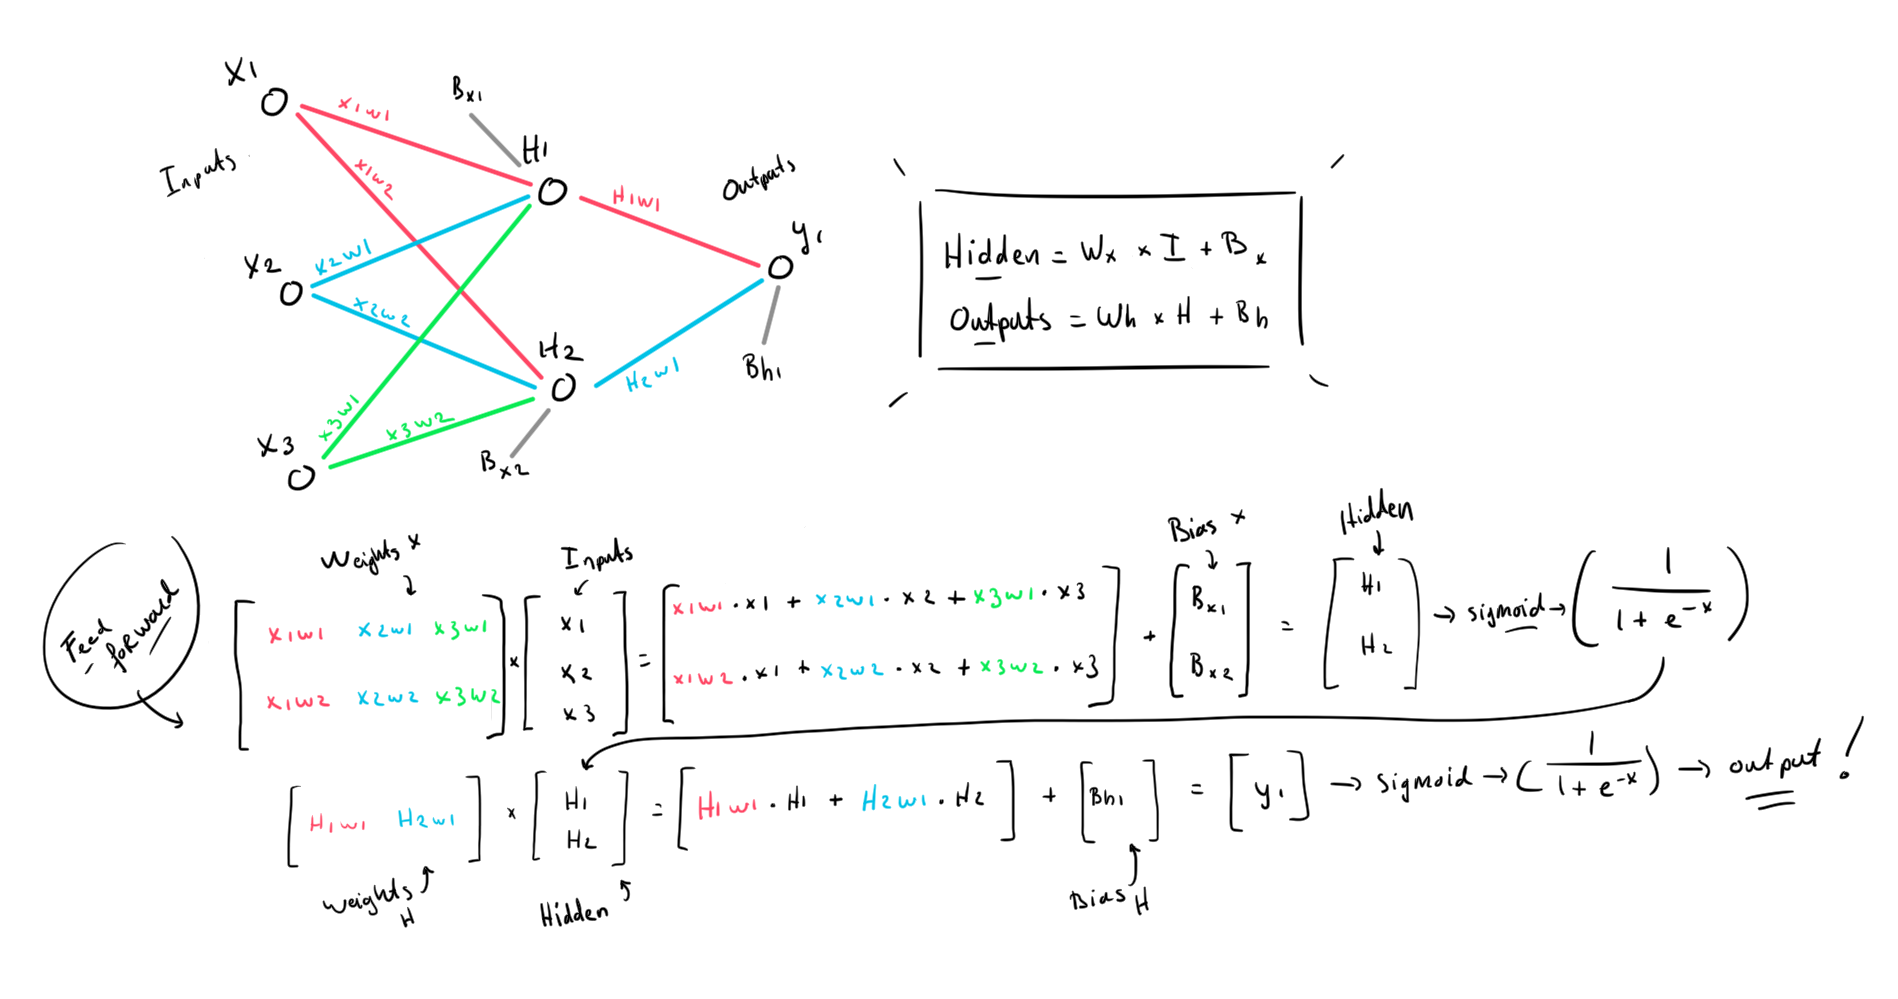 x1
Bx1
x1w1
H1
Inputs
x1w2
H1w1
Outputs
y1
x2
x2w1
x2w2
H2
H2w1
Bh1
x3w1
x3
x3w2
Bx2
Hidden = Wx × I + Bx
Outputs = Wh × H + Bh
Feed
forward
Weights x
Inputs
Bias x
Hidden
[ x1w1 x2w1 x3w1
x1w2 x2w2 x3w2 ] × [ x1
x2
x3 ] = [ x1w1 · x1 + x2w1 · x2 + x3w1 · x3
x1w2 · x1 + x2w2 · x2 + x3w2 · x3 ] + [ Bx1
Bx2 ] = [ H1
H2 ] → sigmoid → ( 1
1 + e^-x )
[ H1w1 H2w1 ] × [ H1
H2 ] = [ H1w1 · H1 + H2w1 · H2 ] + [ Bh1 ] = [ y1 ] → sigmoid → ( 1
1 + e^-x ) → output !
Weights
H
Hidden
Bias H